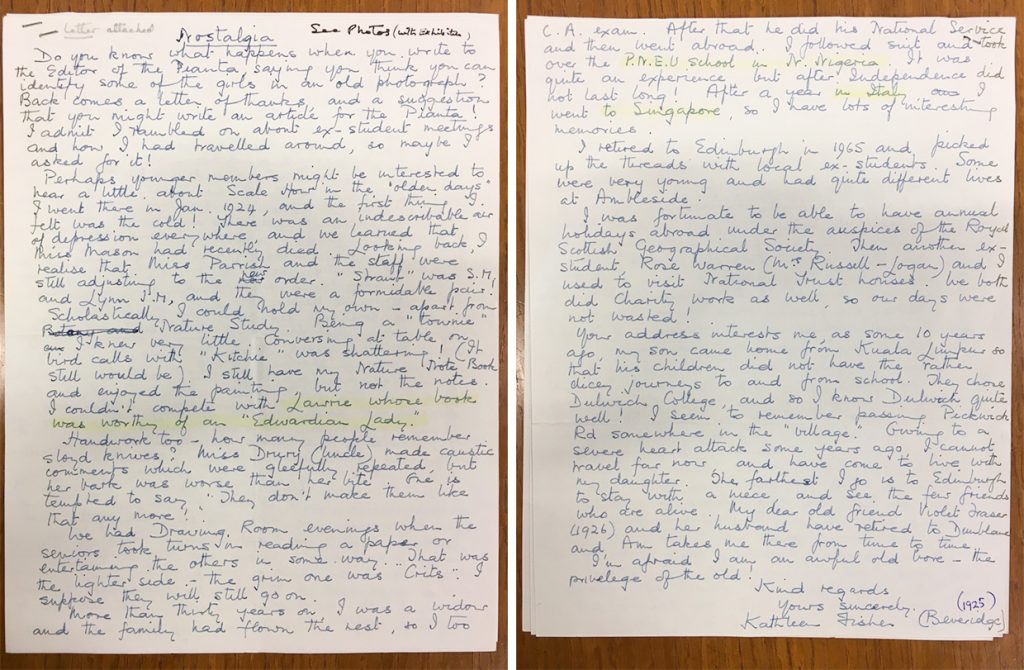 Letter attached
Nostalgia
See Photos (with exhibition)
Do you know what happens when you write to
the Editor of the Pianta saying you think you can
identify some of the girls in an old photograph?
Back comes a letter of thanks, and a suggestion
that you might write an article for the Pianta!
I admit I rambled on about ex-student meetings
and how I had travelled around, so maybe I
asked for it!
Perhaps younger members might be interested to
hear a little about Scale How in the "olden days"
I went there in Jan. 1924, and the first thing I
felt was the cold! There was an indescribable air
of depression everywhere, and we learned that
Miss Mason had recently died. Looking back, I
realise that Miss Parrish and the staff were
still adjusting to the new order. "Straw" was S.M,
and Lynn J.M, and they were a formidable pair!
Scholastically I could hold my own - apart from
Botany and Nature Study. Being a "townie"
I knew very little. Conversing at table on
bird calls with "Kitchie" was shattering! (It
still would be). I still have my Nature Note-Book
and enjoyed the painting, but not the notes.
I couldn't compete with Lawrie whose book
was worthy of an "Edwardian Lady."
Handwork too - how many people remember
sloyd knives? Miss Drury (uncle) made caustic
comments which were gleefully repeated, but
her bark was worse than her bite. One is
tempted to say "They don't make them like
that any more!"
We had Drawing Room evenings when the
seniors took turns in reading a paper or
entertaining the others in some way. That was
the lighter side - the grim one was "Crits" I
suppose they will still go on.
More than thirty years on, I was a widow
and the family had flown the nest, so I too
C.A. exam. After that he did his National Service
and then went abroad. I followed suit and took
over the P.N.E.U School in N. Nigeria. It was
quite an experience but after Independence did
not last long! After a year in Italy I
went to Singapore, so I have lots of interesting
memories.
I retired to Edinburgh in 1965 and picked
up the threads with local ex-students. Some
were very young and had quite different lives
at Ambleside.
I was fortunate to be able to have annual
holidays abroad under the auspices of the Royal
Scottish Geographical Society. Then another ex-
student Rose Warren (Mrs Russell-Logan) and I
used to visit National Trust houses. We both
did Charity work as well, so our days were
not wasted!
Your address interests me, as some 10 years
ago, my son came home from Kuala Lumpur so
that his children did not have the rather
dicey journeys to and from school. They chose
Dulwich College, and so I know Dulwich quite
well! I seem to remember passing Pickwick
Rd somewhere in the "village." Owing to a
severe heart attack some years ago, I cannot
travel far now, and have come to live with
my daughter. The farthest I go is to Edinburgh
to stay with a niece, and see the few friends
who are alive. My dear old friend Violet Fraser
(1926) and her husband have retired to Dunblane
and Ann takes me there from time to time
I'm afraid I am an awful old bore - the
privelege of the old.
Kind regards
Yours sincerely.
Kathleen Fisher (Beveridge)
(1925)